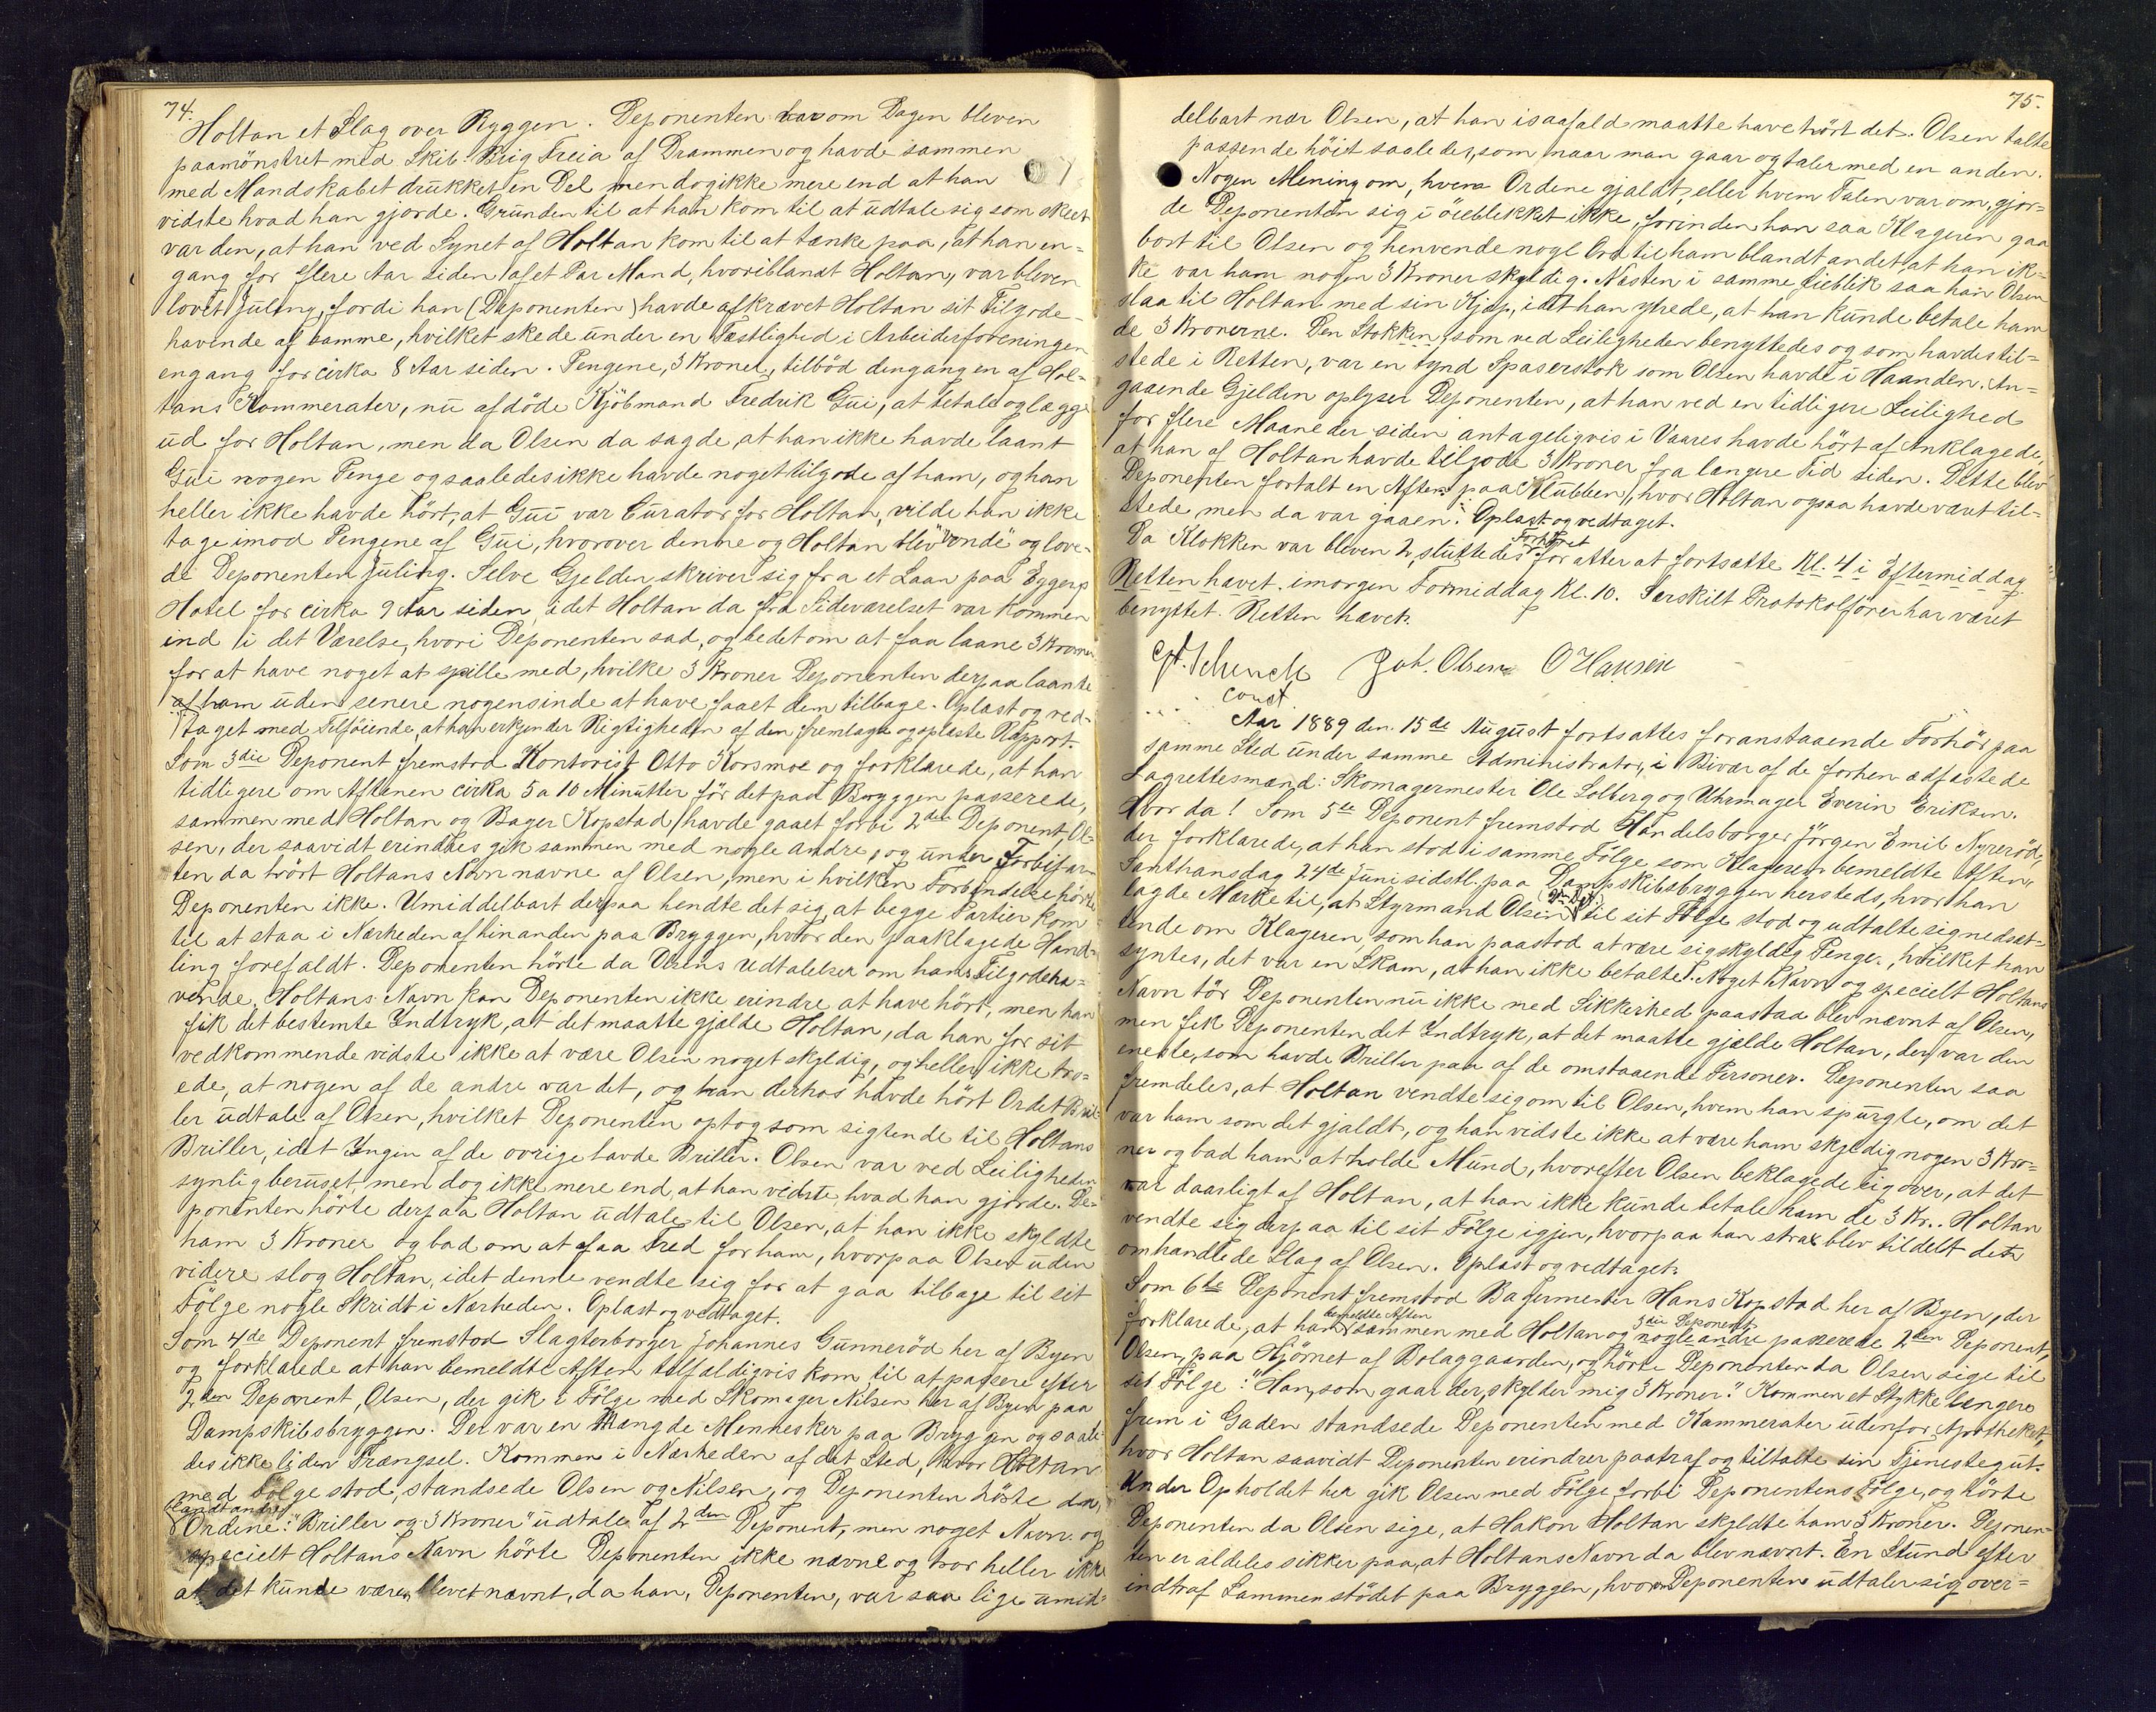 74.
Holtan et Slag over Ryggen. Deponenten var om Dagen bleven
paamönstret med Skib. Brig Freia af Drammen og havde sammen
med Mandskabet drukket en Del men dog ikke mere end at han
vidste hvad han gjorde. Grunden til at han kom til at udtale sig som skeet
var den, at han ved Synet af Holtan kom til at tænke paa, at han en=
gang for flere Aar siden af et Par Mand, hvoriblandt Holtan, var bleven
lovet Juling, fordi han (Deponenten) havde afkrævet Holtan sit Tilgode-
havende af samme, hvilket skede under en Festlighed i Arbeiderforeningen
engang for cirka 8 Aar siden. Pengene, 3 Kroner, tilböd dengang en af Hol=
tans Kammerater, nu afdöde Kjöbmand Fredrik Gui, at betale og lægge
ud for Holtan, men da Olsen da sagde, at han ikke havde laant
Gui nogen Penge og saaledes ikke havde noget tilgode af ham, og han
heller ikke havde hört, at Gui var Curator for Holtan, vilde han ikke
tage imod Pengene af Gui, hvorover denne og Holtan blev "vonde" og love-
de Deponenten Juling. Selve Gjelden skriver sig fra et Laan paa Eggers
Hotel for cirka 9 Aar siden, idet Holtan da fra Sideværelset var kommen
ind i det Værelse, hvori Deponenten sad, og bedet om at faa laane 3 Kroner
for at have noget at spille med, hvilke 3 Kroner Deponenten derpaa laante
ham uden senere nogensinde at have faaet dem tilbage. Oplæst og ved-
taget med Tilföiende, at han erkjender Rigtigheden af den fremlagte og oplæste Rapport.
Som 3die Deponent fremstod Kontorist Otto Korsmoe og forklarede, at han
tidligere om Aftenen cirka 5 a 10 Minutter för det paa Bryggen passerede,
sammen med Holtan og Bager Kopstad havde gaaet forbi 2den Deponent, Ol=
sen, der saavidt erindres gik sammen med nogle andre, og under Forbifar-
ten da hört Holtans Navn nævne af Olsen, men i hvilken Forbindelse hörte
Deponenten ikke. Umiddelbart derpaa hendte det sig, at begge Partier kom
til at staa i Nærheden af hinanden paa Bryggen, hvor den paaklagede Hand-
ling forefaldt. Deponenten hörte da Olsens Udtalelser om hans Tilgodeha=
vende. Holtans Navn kan Deponenten ikke erindre at have hört, men han
fik det bestemte Indtryk, at det maatte gjælde Holtan, da han for sit
vedkommende vidste ikke at være Olsen noget skyldig, og heller ikke tro=
ede, at nogen af de andre var det, og han derhos havde hört Ordet Bril
ler udtale af Olsen, hvilket Deponenten optog som sigtende til Holtans
Briller, idet Ingen af de övrige havde Briller. Olsen var ved Leiligheden
synlig beruset, men dog ikke mere end, at han vidste, hvad han gjorde. De=
ponenten hörte derpaa Holtan udtale til Olsen, at han ikke skyldte
ham 3 Kroner og bad om at faa Fred for ham, hvorpaa Olsen uden
videre slog Holtan, idet denne vendte sig for at gaa tilbage til sit
Fölge nogle Skridt i Nærheden. Oplæst og vedtaget.
Som 4de Deponent fremstod Slagterborger Johannes Gunneröd her af Byen
og forklarede at han bemeldte Aften tilfældigvis kom til at passere efter
2den Deponent, Olsen, der gik i Fölge med Skomager Nilsen her af Byen paa
Dampskibsbryggen. Der var en Mængde Mennesker paa Bryggen og saale=
des ikke liden Trængsel. Kommen i Nærheden af det Sted, hvor Holtan
med Fölge stod, standsede Olsen og Nilsen, og Deponenten hörte da,
blandt andet
Ordene: "Briller og 3 Kroner" udtale af 2den Deponent, men noget Navn og
specielt Holtans Navn hörte Deponenten ikke nævne og tror heller ikke
at det kunde være blevet nævnt, da han, Deponenten, var saa lige umid=
75.
delbart nær Olsen, at han isaafald maatte have hört det. Olsen talte
passende höit saaledes, som naar man gaar og taler med en anden.
Nogen Mening om, hvem Ordene gjaldt, eller hvem Talen var om, gjor=
de Deponenten sig i öieblikket ikke, forinden han saa Klageren gaa
bort til Olsen og henvende nogle Ord til ham blandt andet, at han ik=
ke var ham nogen 3 Kroner skyldig. Næsten i samme Öieblik saa han Olsen
slaa til Holtan med sin Kjæp, idet han ytrede, at han kunde betale ham
de 3 Kronerne. Den Stokken, som ved Leiligheden benyttedes og som havdes til=
stede i Retten, var en tynd Spaserstok som Olsen havde i Haanden. An=
gaaende Gjelden oplyser Deponenten, at han ved en tidligere Leilighed
for flere Maaneder siden antageligvis i Vaares havde hört af Anklagede,
at han af Holtan havde tilgode 3 Kroner fra længere Tid siden. Dette blev
Deponenten fortalt en Aften paa Klubben, hvor Holtan ogsaa havde været til=
stede, men da var gaaen. Oplæst og vedtaget.
Forhöret
Da Klokken var bleven 2, sluttedes for atter at fortsætte Kl. 4 i Eftermiddag
Retten hævet. imorgen Formiddag Kl. 10. Særskilt Protokolförer har været
benyttet. Retten hævet.
Schenck Joh. Olsen O Hansen
const.
Aar 1889 den 15de August fortsattes foranstaaende Forhör paa
samme Sted under samme Administrator, i Bivær af de forhen edfæstede
Lagrettesmænd: Skomagermester Ole Solberg og Uhrmager Everin Eriksen.
Hvor da! Som 5te Deponent fremstod Handelsborger Jörgen Emil Nyreröd,
der forklarede, at han stod i samme Fölge som Klageren bemeldte Aften,
Santhansdag 24de Juni sidstl. paa Dampskibsbryggen hersteds, hvor han
2den Dep.
lagde Mærke til, at Styrmand Olsen til sit Fölge stod og udtalte sig nedsæt=
tende om Klageren, som han paastod at være sig skyldig Penge, hvilket han
syntes, det var en Skam, at han ikke betalte. Noget Navn og specielt Holtans
Navn tör Deponenten nu ikke med Sikkerhed paastaa blev nævnt af Olsen,
men fik Deponenten det Indtryk, at det maatte gjælde Holtan, der var den
eneste, som havde Briller paa af de omstaaende Personer. Deponenten saa
fremdeles, at Holtan vendte sig om til Olsen, hvem han spurgte, om det
var ham som det gjaldt, og han vidste ikke at være ham skyldig nogen 3 Kro=
ner og bad ham at holde Mund, hvorefter Olsen beklagede sig over, at det
var daarligt af Holtan, at han ikke kunde betale ham de 3 Kr.. Holtan
vendte sig derpaa til sit Fölge igjen, hvorpaa han strax blev tildelt det
omhandlede Slag af Olsen. Oplæst og vedtaget.
Som 6te Deponent fremstod Bagermester Hans Kopstad her af Byen, der
bemeldte Aften 3die Deponent
forklarede, at han sammen med Holtan og nogle andre passerede 2den Deponent,
Olsen, paa Hjörnet af Bolaggaarden, og hörte Deponenten da Olsen sige til
sit Fölge: "Han, som gaar der, skylder mig 3 Kroner." Kommen et Stykke længere
frem i Gaden standsede Deponenten med Kammerater udenfor Apotheket,
hvor Holtan saavidt Deponenten erindrer paatraf og tiltalte sin Tjenestegut.
Under Opholdet her gik Olsen med Fölge forbi Deponentens Fölge, og hörte
Deponenten da Olsen sige, at Hakon Holtan skyldte ham 3 Kroner. Deponen=
ten er aldeles sikker paa, at Holtans Navn da blev nævnt. En Stund efter
indtraf Sammenstödet paa Bryggen, hvor Deponenten udtaler sig over=